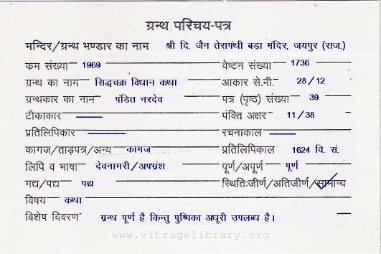 ग्रन्थ परिचय-पत्र
मन्दिर/ग्रन्थ भण्डार का नाम श्री दि. जैन तेरापंथी बडा मंदिर, जयपुर (राज.)
क्रम संख्या 1969 वेष्टन संख्या 1736
ग्रन्थ का नाम सिद्धचक्र विधान कथा आकार से.मी. 28/12
ग्रन्थकार का नाम पंडित नरदेव पत्र (पृष्ठ) संख्या 39
टीकाकार पंक्ति अक्षर 11/38
प्रतिलिपिकार रचनाकाल
कागज/ताड़पत्र/अन्य कागज प्रतिलिपिकाल 1624 वि. सं.
लिपि व भाषा देवनागरी/अपभ्रंश पूर्ण/अपूर्ण पूर्ण
गद्य/पद्य पद्य स्थिति:जीर्ण/अतिजीर्ण/सामान्य
विषय कथा
विशेष विवरण ग्रंथ पूर्ण है किन्तु पुष्पिका अधूरी उपलब्ध है।
www.vitragelibrary.org